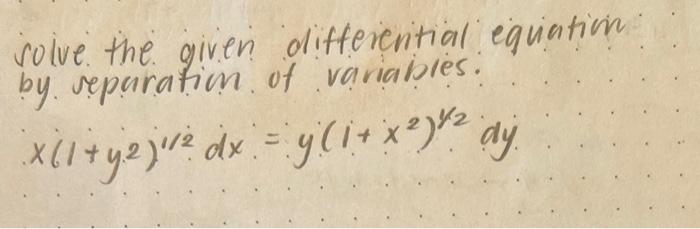 solve the given differential equation
by separation of variables.
x(1+y²)^1/2 dx = y(1+x²)^1/2 dy